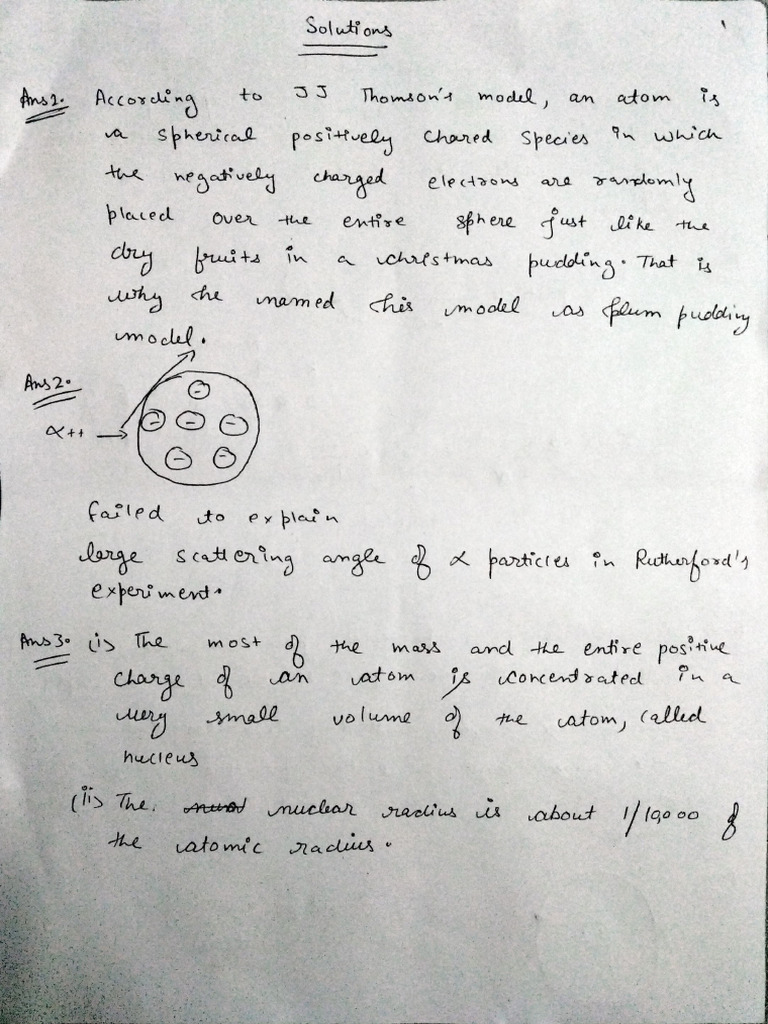 Solutions
Ans1. According to JJ Thomson's model, an atom is
a spherical positively chared species in which
the negatively charged electrons are randomly
placed over the entire sphere just like the
dry fruits in a christmas pudding. That is
why he named this model as plum pudding
model.
Ans2.
α++
failed to explain
large scattering angle of α particles in Rutherford's
experiment.
Ans3. (i) The most of the mass and the entire positive
charge of an atom is concentrated in a
very small volume of the atom, called
nucleus
(ii) The nuclear radius is about 1/10,000 of
the atomic radius.